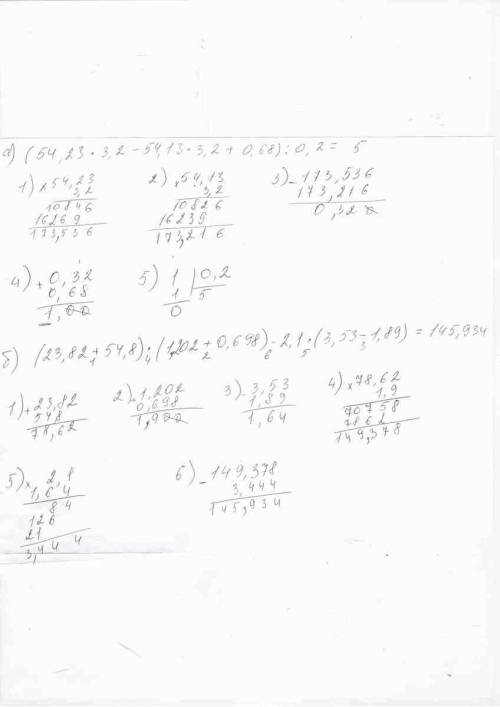 а) (54,23 * 3,2 - 54,13 * 3,2 + 0,68) : 0,2 = 5
1) × 54,23
3,2
10846
16269
173,536
2) × 54,13
3,2
10826
16239
173,216
3) - 173,536
173,216
0,320
4) + 0,32
0,68
1,00
5) 1 0,2
1 5
0
б) (23,82 + 54,8) * (1,202 + 0,698) - 2,1 * (3,53 - 1,89) = 145,934
1 4 2 6 5 3
1) + 23,82
54 8
78,62
2) + 1,202
0,698
1,900
3) - 3,53
1,89
1,64
4) × 78,62
1,9
70758
7862
149,378
5) × 2,1
1,64
84
126
21
3,444
6) - 149,378
3,444
145,934